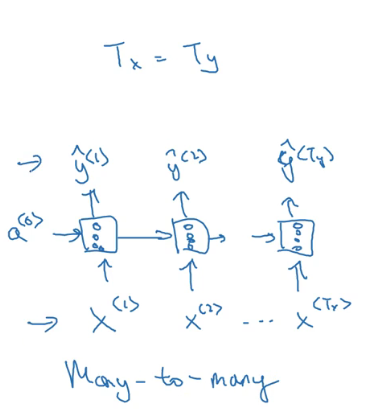 Tx = Ty
→ ŷ^(1) ŷ^(2) ŷ^(Ty)
a^(0)
→ X^(1) X^(2) ... X^(Tx)
Many-to-many